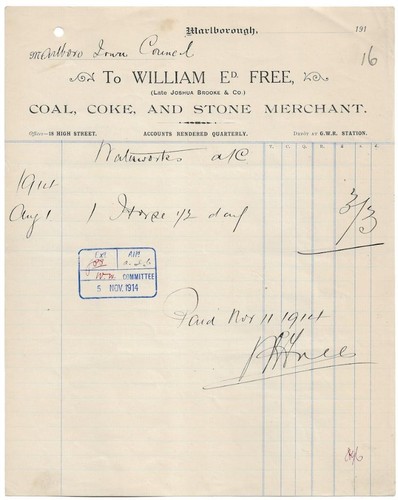 Marlborough, 191
16
Marlboro Town Council
To WILLIAM ED. FREE,
(Late Joshua Brooke & Co)
COAL, COKE, AND STONE MERCHANT.
Office—18 HIGH STREET. ACCOUNTS RENDERED QUARTERLY. Depôt at G.W.R. STATION.
Waterworks a/c
1914
Aug 1 1 Horse 1/2 day 3/3
Ext
COMMITTEE
5 NOV. 1914
Paid Nov 11 1914
Free